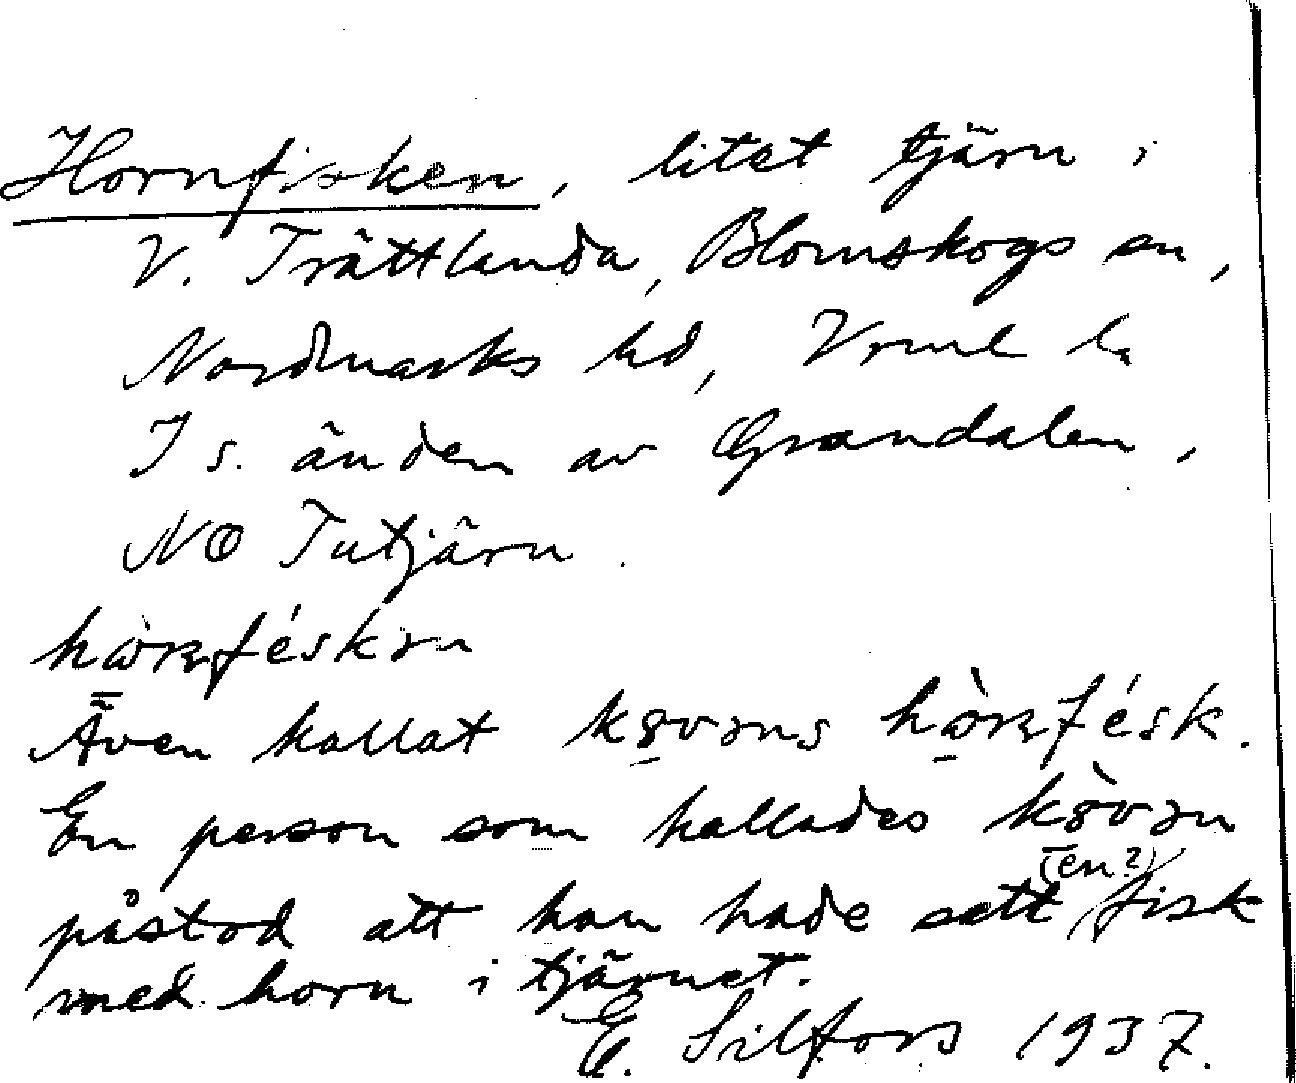 Hornfisken, litet tjärn i
V. Trättlanda, Blomskogs sn,
Nordmarks hd, Vrml la
I s. änden av Grandalen,
NO Tutjärn.
Även kallat
En person som kallades
(en?)
påstod att han hade sett fisk
med horn i tjärnet.
E. Silfors 1937.